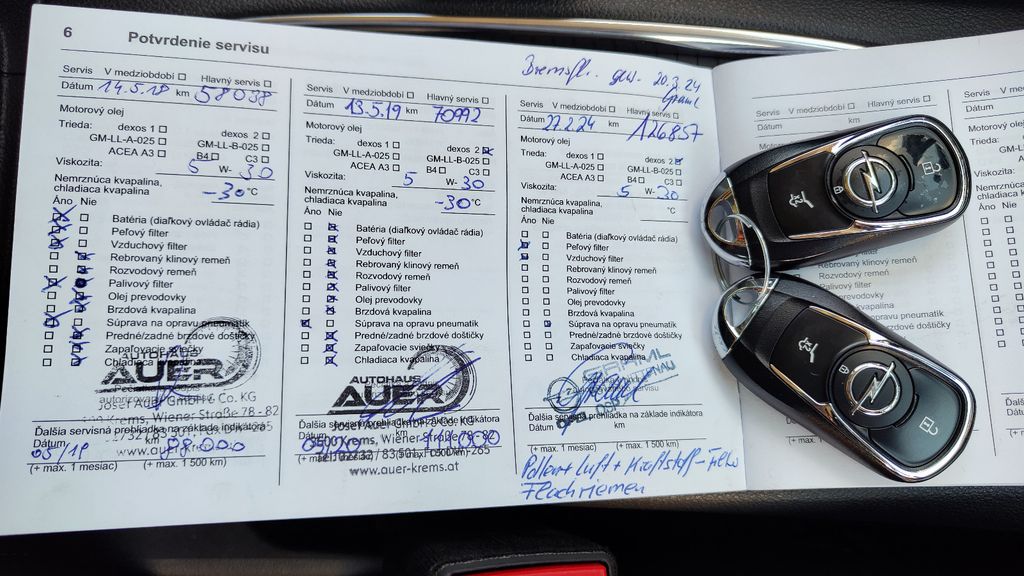 6 Potvrdenie servisu
Servis V medziobdobí Hlavný servis
Dátum 14.5.18 km 58038
Motorový olej
Trieda: dexos 1 dexos 2
GM-LL-A-025 GM-LL-B-025
ACEA A3 B4 C3
Viskozita: 5 W- 30
Nemrznúca kvapalina,
chladiaca kvapalina -30 °C
Áno Nie
Batéria (diaľkový ovládač rádia)
Peľový filter
Vzduchový filter
Rebrovaný klinový remeň
Rozvodový remeň
Palivový filter
Olej prevodovky
Brzdová kvapalina
Súprava na opravu pneumatík
Predné/zadné brzdové doštičky
Zapaľovacie sviečky
Chladiaca kvapalina
AUTOHAUS
AUER
Josef Auer GmbH & Co. KG
Krems, Wiener Straße 78 - 82
Ďalšia servisná prehliadka na základe indikátora
Dátum km
05/19 88.000
www.auer-krems.at
(+ max. 1 mesiac) (+ max. 1 500 km)
Servis V medziobdobí Hlavný servis
Dátum 13.5.19 km 70992
Motorový olej
Trieda: dexos 1 dexos 2
GM-LL-A-025 GM-LL-B-025
ACEA A3 B4 C3
Viskozita: 5 W- 30
Nemrznúca kvapalina,
chladiaca kvapalina -30 °C
Áno Nie
Batéria (diaľkový ovládač rádia)
Peľový filter
Vzduchový filter
Rebrovaný klinový remeň
Rozvodový remeň
Palivový filter
Olej prevodovky
Brzdová kvapalina
Súprava na opravu pneumatík
Predné/zadné brzdové doštičky
Zapaľovacie sviečky
Chladiaca kvapalina
AUTOHAUS
AUER
Josef Auer GmbH & Co. KG
Ďalšia servisná prehliadka na základe indikátora
Dátum
Krems, Wiener Straße 78-82
(+ max. 1 mesiac)
www.auer-krems.at
20.3.24
Servis V medziobdobí Hlavný servis
Dátum 27.2.24 km 126857
Motorový olej
Trieda: dexos 1 dexos 2
GM-LL-A-025 GM-LL-B-025
ACEA A3 B4 C3
Viskozita: 5 W- 30
Nemrznúca kvapalina,
chladiaca kvapalina °C
Áno Nie
Batéria (diaľkový ovládač rádia)
Peľový filter
Vzduchový filter
Rebrovaný klinový remeň
Rozvodový remeň
Palivový filter
Olej prevodovky
Brzdová kvapalina
Súprava na opravu pneumatík
Predné/zadné brzdové doštičky
Zapaľovacie sviečky
Chladiaca kvapalina
Ďalšia servisná prehliadka na základe indikátora
Dátum km
(+ max. 1 mesiac) (+ max. 1 500 km)
Pollen + Luft + Kraftstoff-Filter
Flachriemen
Servis V medziobdobí Hlavný servis
Dátum km